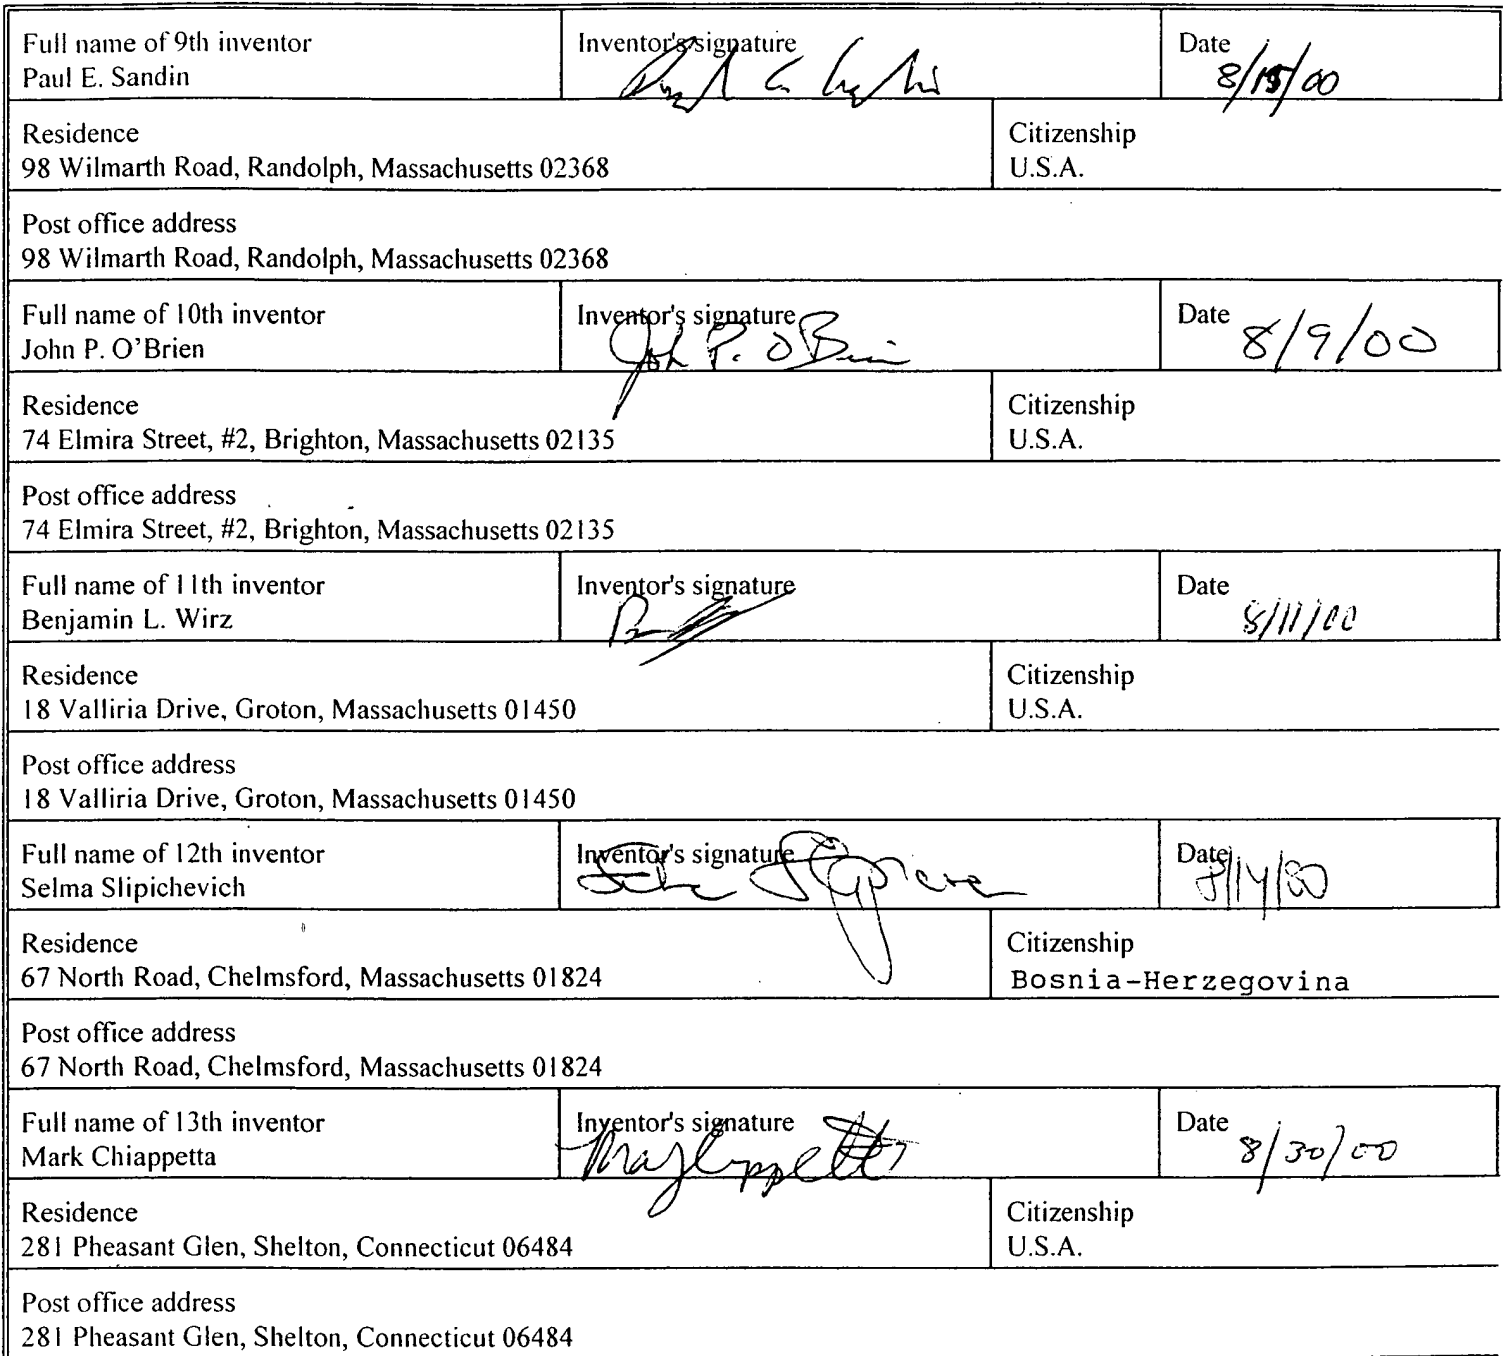 Full name of 9th inventor
Paul E. Sandin
Inventor's signature
Date
8/15/00
Residence
98 Wilmarth Road, Randolph, Massachusetts 02368
Citizenship
U.S.A.
Post office address
98 Wilmarth Road, Randolph, Massachusetts 02368
Full name of 10th inventor
John P. O'Brien
Inventor's signature
John P. O'Brien
Date
8/9/00
Residence
74 Elmira Street, #2, Brighton, Massachusetts 02135
Citizenship
U.S.A.
Post office address
74 Elmira Street, #2, Brighton, Massachusetts 02135
Full name of 11th inventor
Benjamin L. Wirz
Inventor's signature
Date
8/11/00
Residence
18 Valliria Drive, Groton, Massachusetts 01450
Citizenship
U.S.A.
Post office address
18 Valliria Drive, Groton, Massachusetts 01450
Full name of 12th inventor
Selma Slipichevich
Inventor's signature
Date
8/14/00
Residence
67 North Road, Chelmsford, Massachusetts 01824
Citizenship
Bosnia-Herzegovina
Post office address
67 North Road, Chelmsford, Massachusetts 01824
Full name of 13th inventor
Mark Chiappetta
Inventor's signature
Date
8/30/00
Residence
281 Pheasant Glen, Shelton, Connecticut 06484
Citizenship
U.S.A.
Post office address
281 Pheasant Glen, Shelton, Connecticut 06484